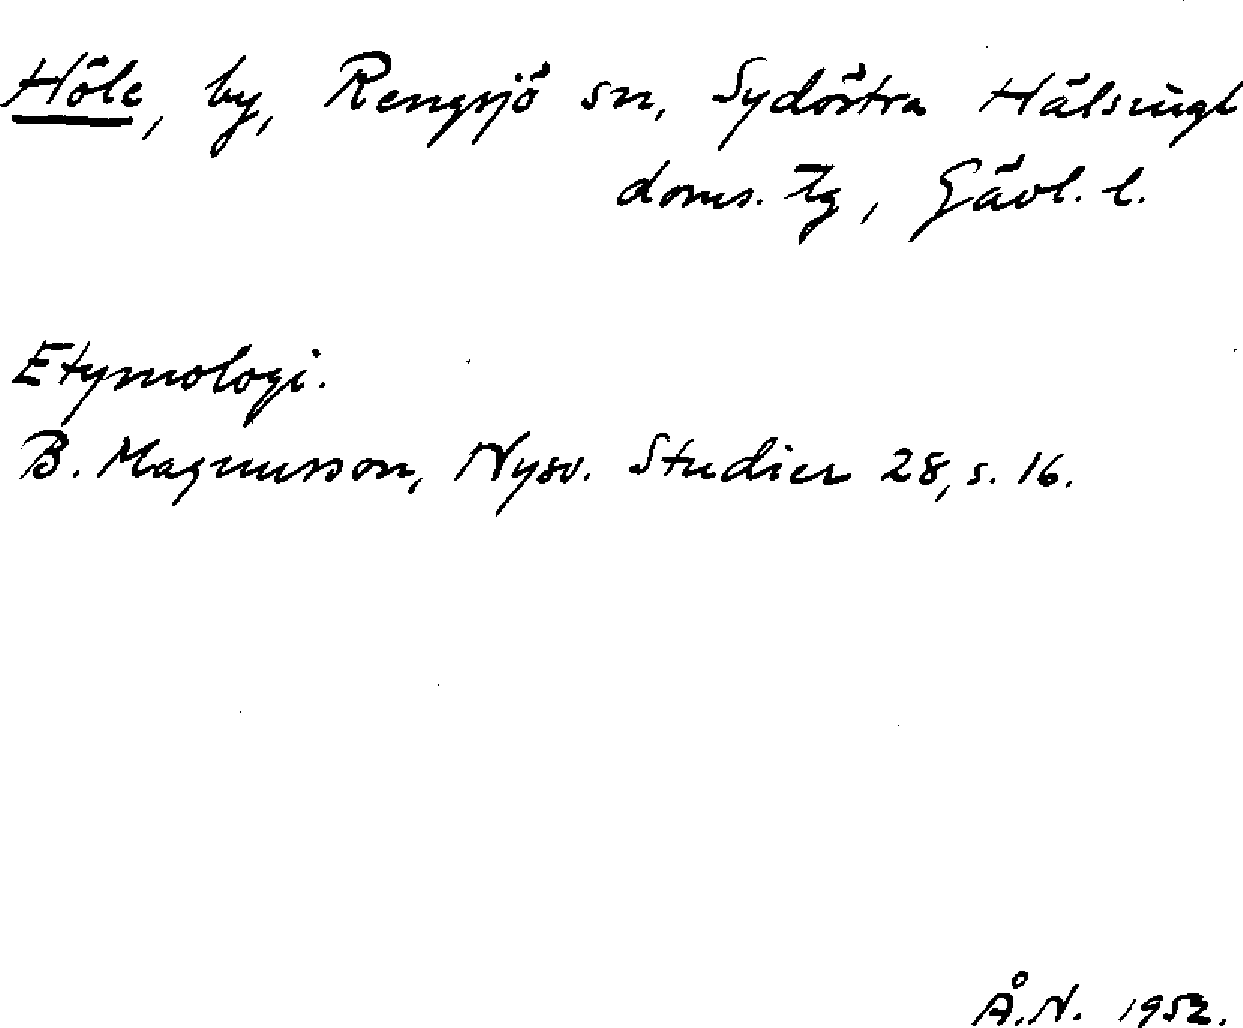 Höle, by, Rengsjö sn, Sydöstra Hälsingl
doms. tg, Gävl. l.
Etymologi.
B. Magnusson, Nysv. Studier 28, s. 16.
Å.N. 1952.